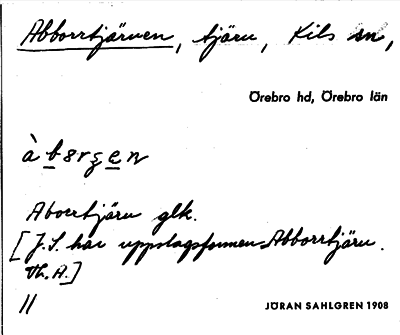 Abborrtjärnen, tjärn, Kils sn,
Örebro hd, Örebro län
Abortjärn glk.
[J.S. har uppslagsformen Abborrtjärn.
Th. A.]
//
JÖRAN SAHLGREN 1908